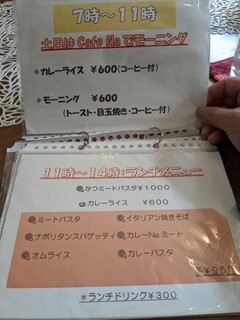 7時～11時
土日は Cafe Na でモーニング
*カレーライス ¥600(コーヒー付)
*モーニング ¥600
(トースト・目玉焼き・コーヒー付)
11時～14時:ランチメニュー
かつミートパスタ¥1000
カレーライス ¥600
ミートパスタ
イタリアン焼きそば
ナポリタンスパゲッティ
カレーNa ミート
オムライス
カレーパスタ
*ランチドリンク¥300